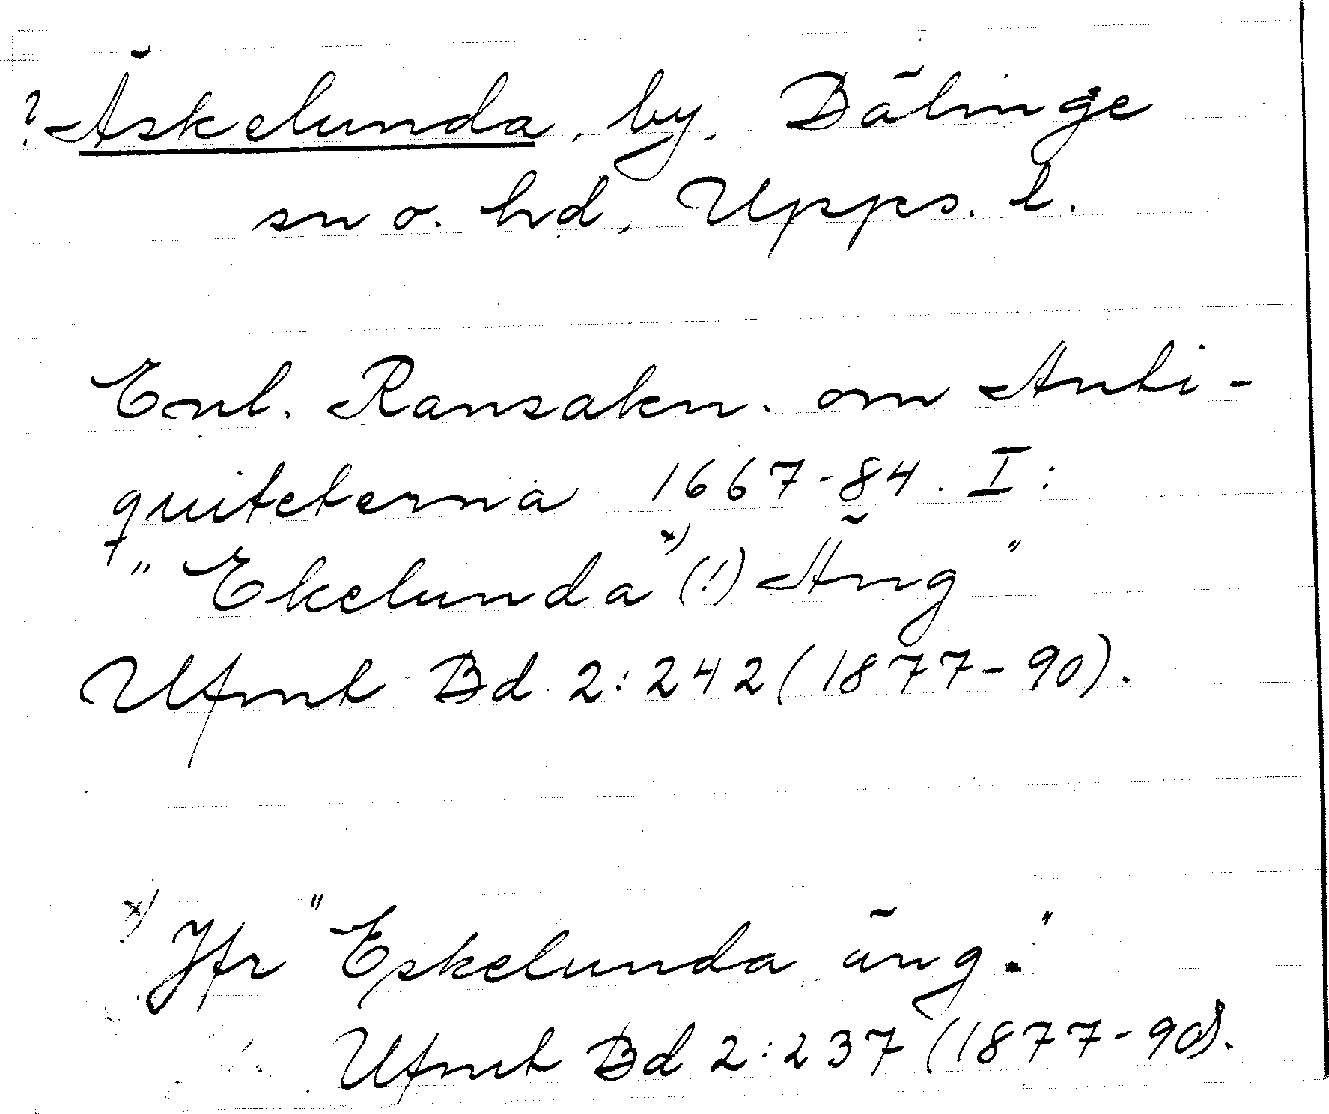 ? Äskelunda, by, Bälinge
sn o. hd, Upps. l.
Enl. Ransakn. om Anti-
quiteterna 1667-84. I:
"Ekelunda x) (!) Äng"
Ufmt Bd 2:242 (1877-90).
x) Jfr "Eskelunda äng."
Ufmt Bd 2:237 (1877-90).